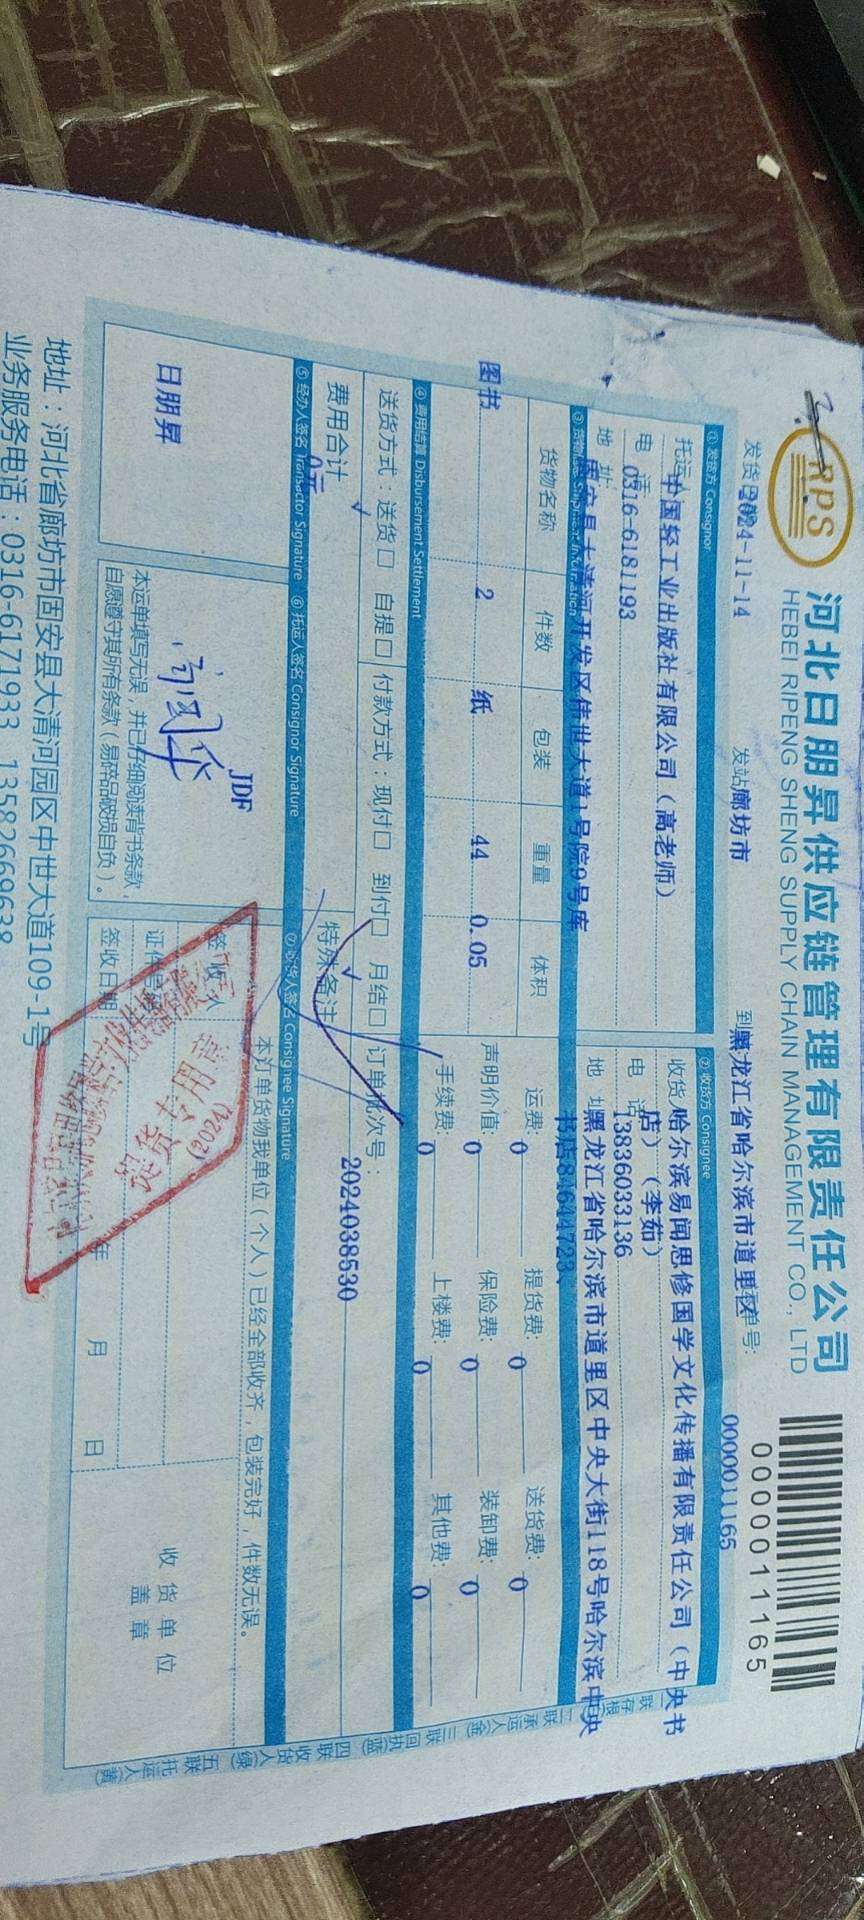 RPS
河北日朋昇供应链管理有限责任公司
HEBEI RIPENG SHENG SUPPLY CHAIN MANAGEMENT CO., LTD
0000011165
发货日期 2024-11-14 发站 廊坊市 到 黑龙江省哈尔滨市道里区 单号: 0000011165
① 发货方 Consignor
托运人 中国轻工业出版社有限公司（高老师）
电 话 0316-6181193
地 址: 固安县大清河开发区伟世大道1号院9号库
② 收货方 Consignee
收货人 哈尔滨易闻思修国学文化传播有限责任公司（中央书
店）（李茹）
电 话 13836033136
地 址 黑龙江省哈尔滨市道里区中央大街118号哈尔滨中央
书店84644723、
③ 货物信息 Shipment Information
货物名称 件数 包装 重量 体积
图书 2 纸 44 0.05
运费: 0 提货费: 0 送货费: 0
声明价值: 0 保险费: 0 装卸费: 0
手续费: 0 上楼费: 0 其他费: 0
④ 费用结算 Disbursement Settlement
送货方式：送货□ 自提□ 付款方式：现付□ 到付□ 月结□ 订单批次号： 2024038530
费用合计 0元
特殊备注
⑤ 经办人签名 Transactor Signature ⑥ 托运人签名 Consignor Signature ⑦ 收货人签名 Consignee Signature
日朋昇
JDF
本运单填写无误，并已仔细阅读背书条款，
自愿遵守其所有条款（易碎品破损自负）。
本订单货物我单位（个人）已经全部收齐，包装完好，件数无误。
签收人
签收日期 年 月 日
收货单位
盖章
提货专用章
(2024)
一联存根(白) 二联承运人(金) 三联回执(蓝) 四联收货人(绿) 五联托运人(黄)
地址：河北省廊坊市固安县大清河园区中世大道109-1号
业务服务电话：0316-6171933 13582669638